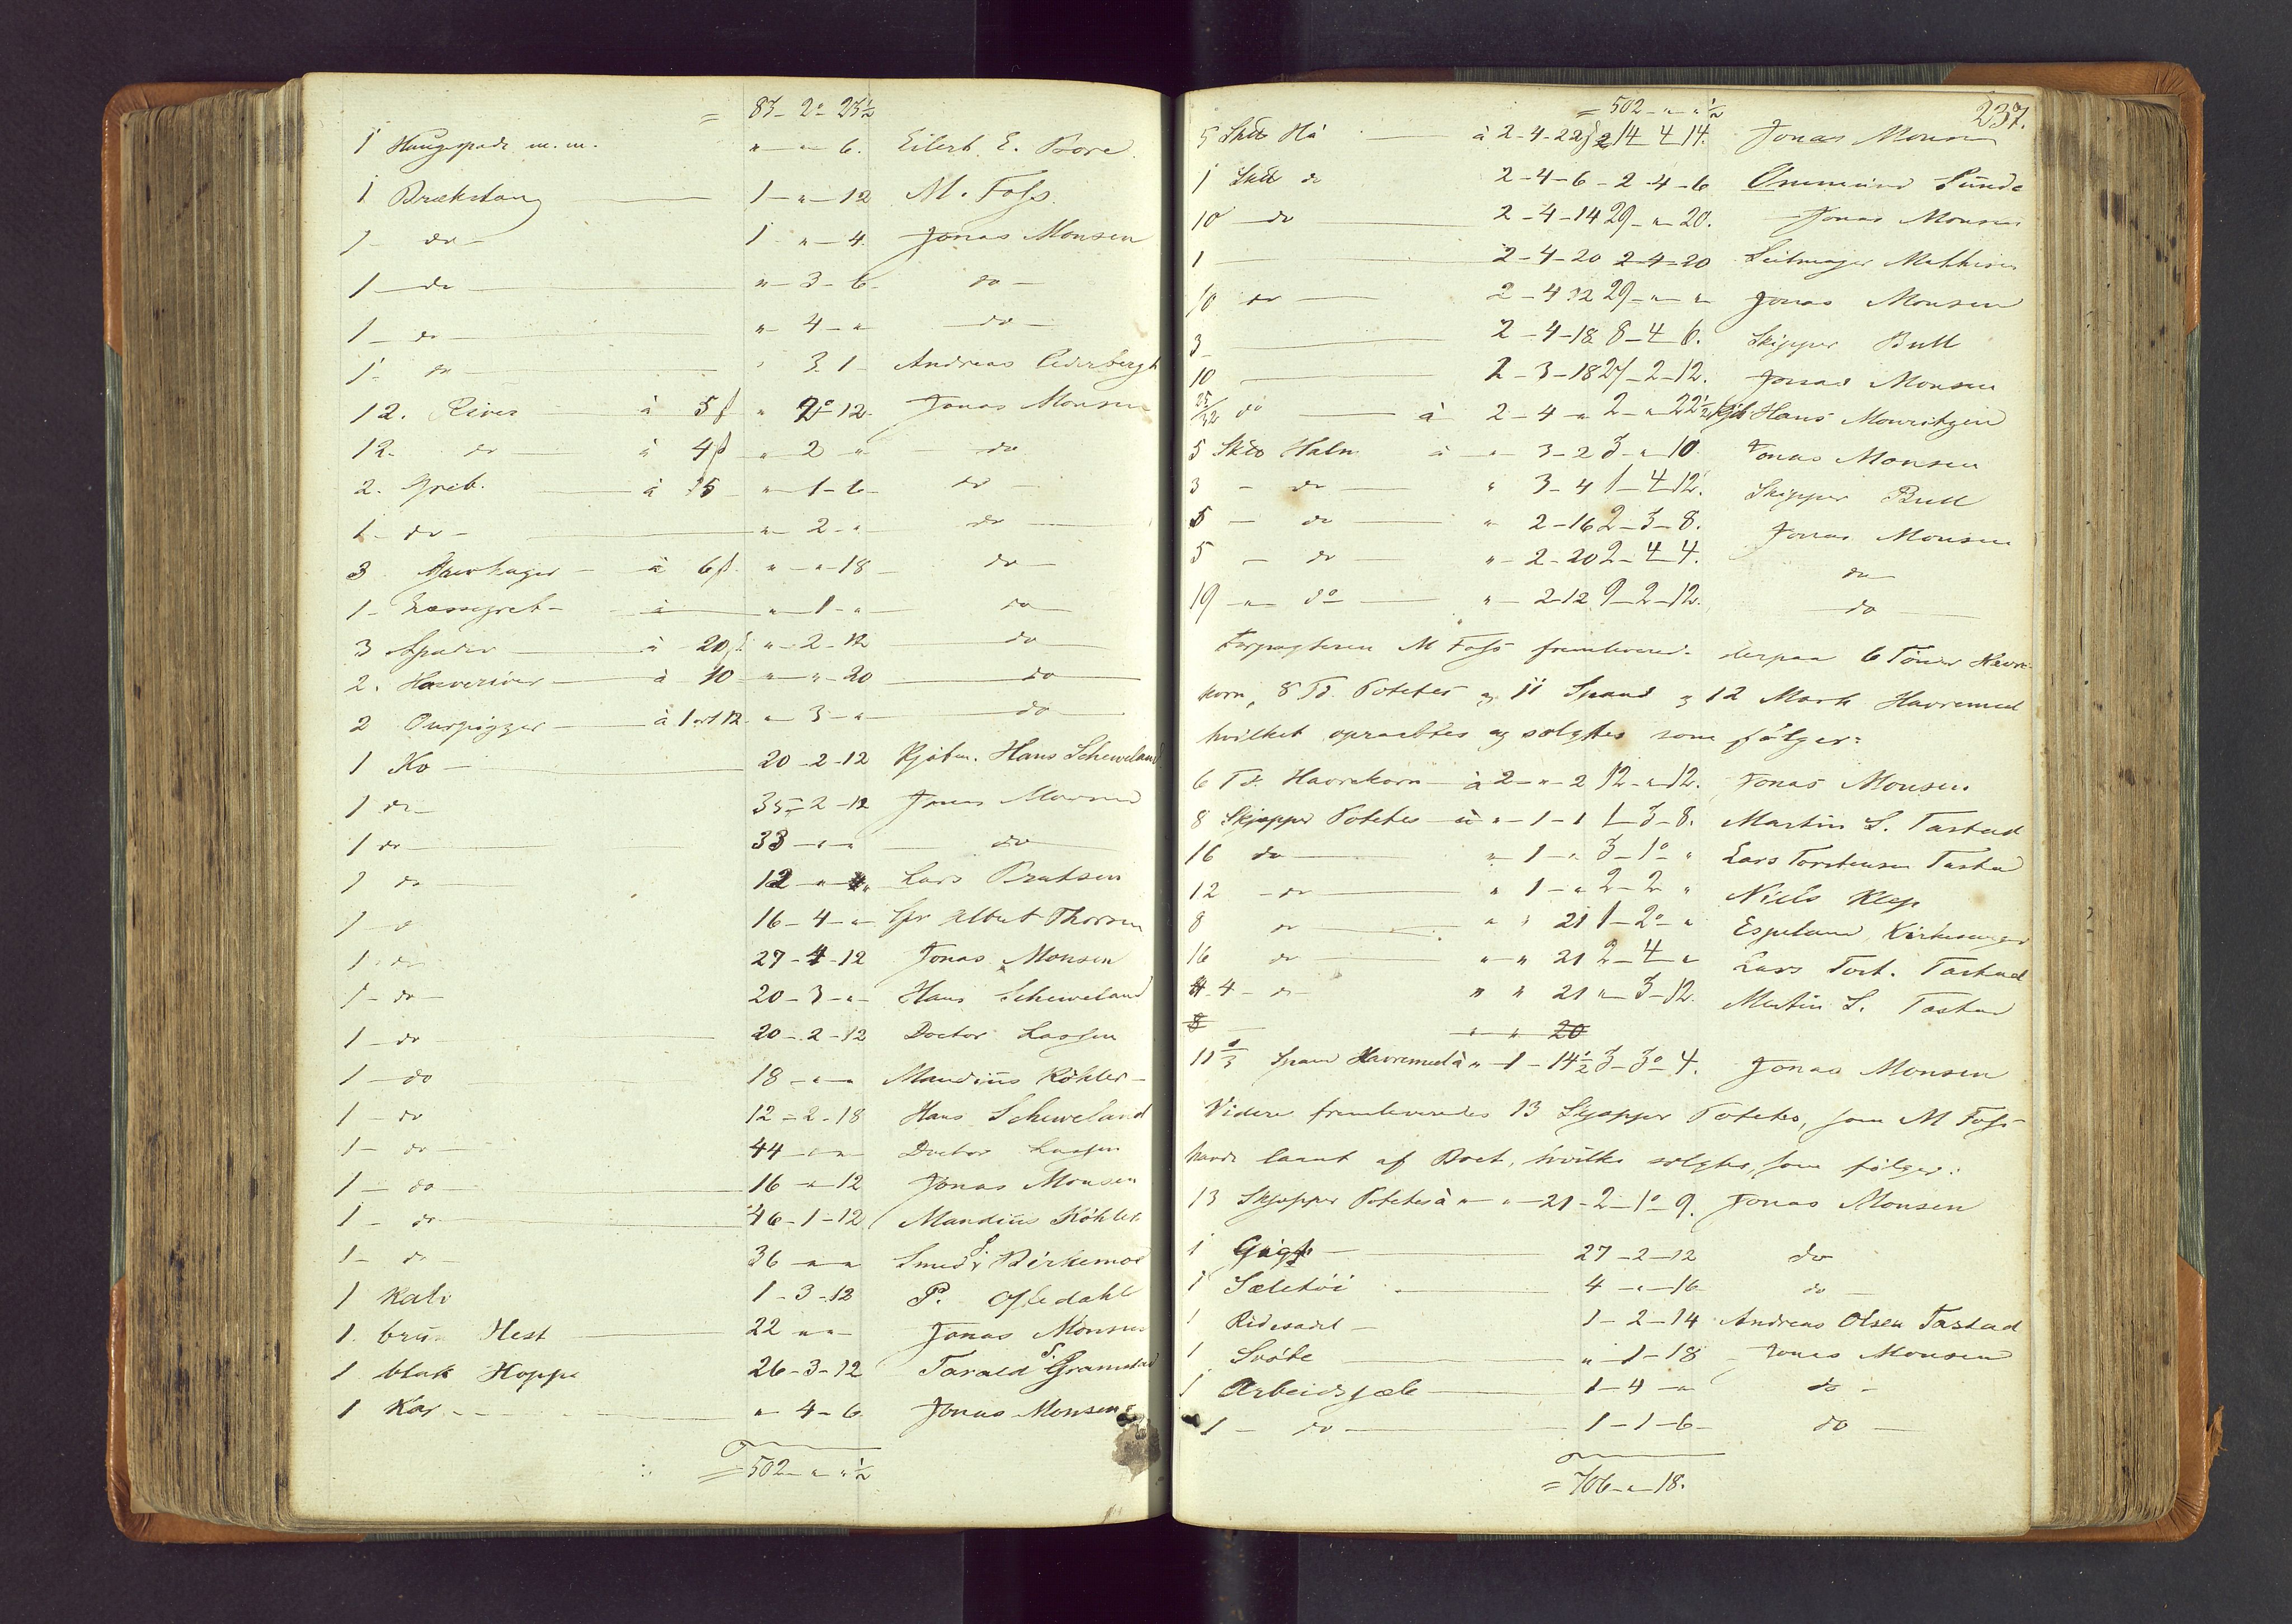 = 83 - 2 - 23½
1 Haugspade m. m. " - " - 6. Eilert E. Bore
1 Brækstang 1 - " - 12 M. Foss.
1 - do - 1 - " - 4. Jonas Monsen
1 - do " - 3 - 6 - do -
1 - do " - 4 - " - do -
1 - do " 3 - 1 - Andreas Cederbergh
12. River à 5 ß " 2 - 12 - Jonas Monsen
12. do à 4 ß " - 2 - " - do
2. Greb. à 15 " - 1 - 6 - do -
1 - do - " - 2 - " - do
3 à 6 ß " - " - 18 - do -
1 - Læssegreb - à " - 1 - " do
3 Spader à 20 ß " - 2 - 12 do
2. Haveriver à 10 " - " - 20 do
2 à 1 ort 12. " - 3 - " do
1 Ko 20 - 2 - 12 Kjøbm. Hans Scheveland
1 do 35 - 2 - 12 Jonas Monsen
1 do 33 - " - " do
1 do 12 - " - Lars Bratsen
1 - do 16 - 4 - " Albert Thorsen
1 - do 27 - 4 - 12 Jonas Monsen
1 - do - 20 - 3 - " - Hans Scheveland
1 - do 20 - 2 - 12 Doctor Lassen
1 - do 18 - " - " Maudius Köhler -
1 - do 12 - 2 - 18 Hans Scheveland
1 - do - 44 - " - " Doctor Lassen
1 - do 16 - " - 12 Jonas Monsen
1 - do 46 - 1 - 12 Maudius Köhler
1 - do - 36 - " - " Smed Birkemoe
1 Kalv 1 - 3 - 12 P. Ofstedahl
1. brun Hest 22 " " - Jonas Monsen
1 blak Hoppe 26 - 3 - 12 Tarald S. Gramstad
1 Kar " - 4 - 6 Jonas Monsen
= 502 - " - " ½
237.
= 502 - " - " ½
5 Sk℔ Hö à 2 - 4 - 22 14 - 4 - 14. Jonas Monsen
1 Sk℔ do 2 - 4 - 6 - 2 - 4 - 6 Ommund Sunde
10 do 2 - 4 - 14 29 - " - 20. Jonas Monsen
1 2 - 4 - 20 2 - 4 - 20 Mathisen
10 do 2 - 4 12 29 - " - " Jonas Monsen
3 - 2 - 4 - 18 8 - 4 - 6. Skipper Bull
10 2 - 3 - 18 27 - 2 - 12. Jonas Monsen
25/32 do à 2 - 4 - " 2 - " - 22½ Kjb Hans Mouritzen
5 Sk℔ Halm à " - 3 - 2 3 - " - 10 Jonas Monsen
3 - do " 3 - 4 1 - 4 - 12. Skipper Bull
5 - do " 2 - 16 2 - 3 - 8. Jonas Monsen
5 - do " - 2 - 20 2 - 4 - 4. do
19 - " do " - 2 - 12 9 - 2 - 12. do
Forpagteren M Foss fremleverede derpaa 6 Tönder Havre-
korn, 8 Td. Potetes og 11 Spand og 12 Mark Havremeel
hvilket opraabtes og solgtes som fölger:
6 Td. Havrekorn à 2 - " - 2 12 - " - 12. Jonas Monsen
8 Skjepper Potetes à " - 1 - 1 1 - 3 - 8. Martin S. Tastad
16 do " - 1 - " 3 - 1 - " Lars Torstensen Tastad
12 - do " 1 - " 2 - 2 " Niels Klep
8 do " " 21 1 - 2 - " Espeland, Kirkesanger
16 do " - " 21 2 - 4 - " Lars Torst. Tastad
4 - do " " 21 " - 3 - 12. Martin S. Tastad
8 - " - " 20
11⅓ Spand Havremeel à " - 1 - 14½ 3 - 3 - 4. Jonas Monsen
Videre fremleveredes 13 Skjepper Potetes, som M Foss
havde laant af Boet, hvilke solgtes, som fölger:
13 Skjepper Potetes à " - " - 21 - 2 - 1 - 9. Jonas Monsen
1 Gig 27 - 2 - 12 do
1 Sæletöi 4 - " - 16 do -
1 Ridesadel - 1 - 2 - 14 Andreas Olsen Tastad
1 Svöbe " - 1 - 18 - Jonas Monsen
1 Arbeidssæle 1 - 4 - " do -
1 - do 1 - 1 - 6 - do -
= 706 - " - 18.